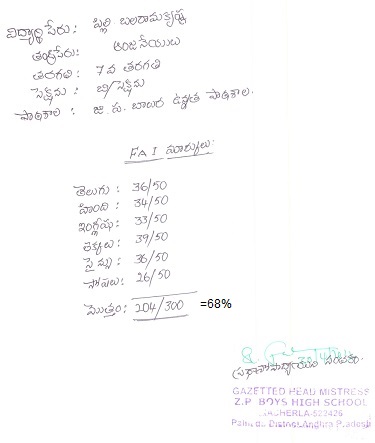 విద్యార్థి పేరు: పిల్లి బలరామకృష్ణ
తండ్రిపేరు: ఆంజనేయులు
తరగతి: 7 వ తరగతి
సెక్షను: బి/సెక్షను
పాఠశాల: జి.ప. బాలుర ఉన్నత పాఠశాల.
FA I మార్కులు:
తెలుగు: 36/50
హింది: 34/50
ఇంగ్లీషు: 33/50
లెక్కలు: 39/50
సైన్సు: 36/50
సోషలు: 26/50
మొత్తం: 204/300 =68%
GAZETTED HEAD MISTRESS
Z.P BOYS HIGH SCHOOL
-522426
District, Andhra Pradesh